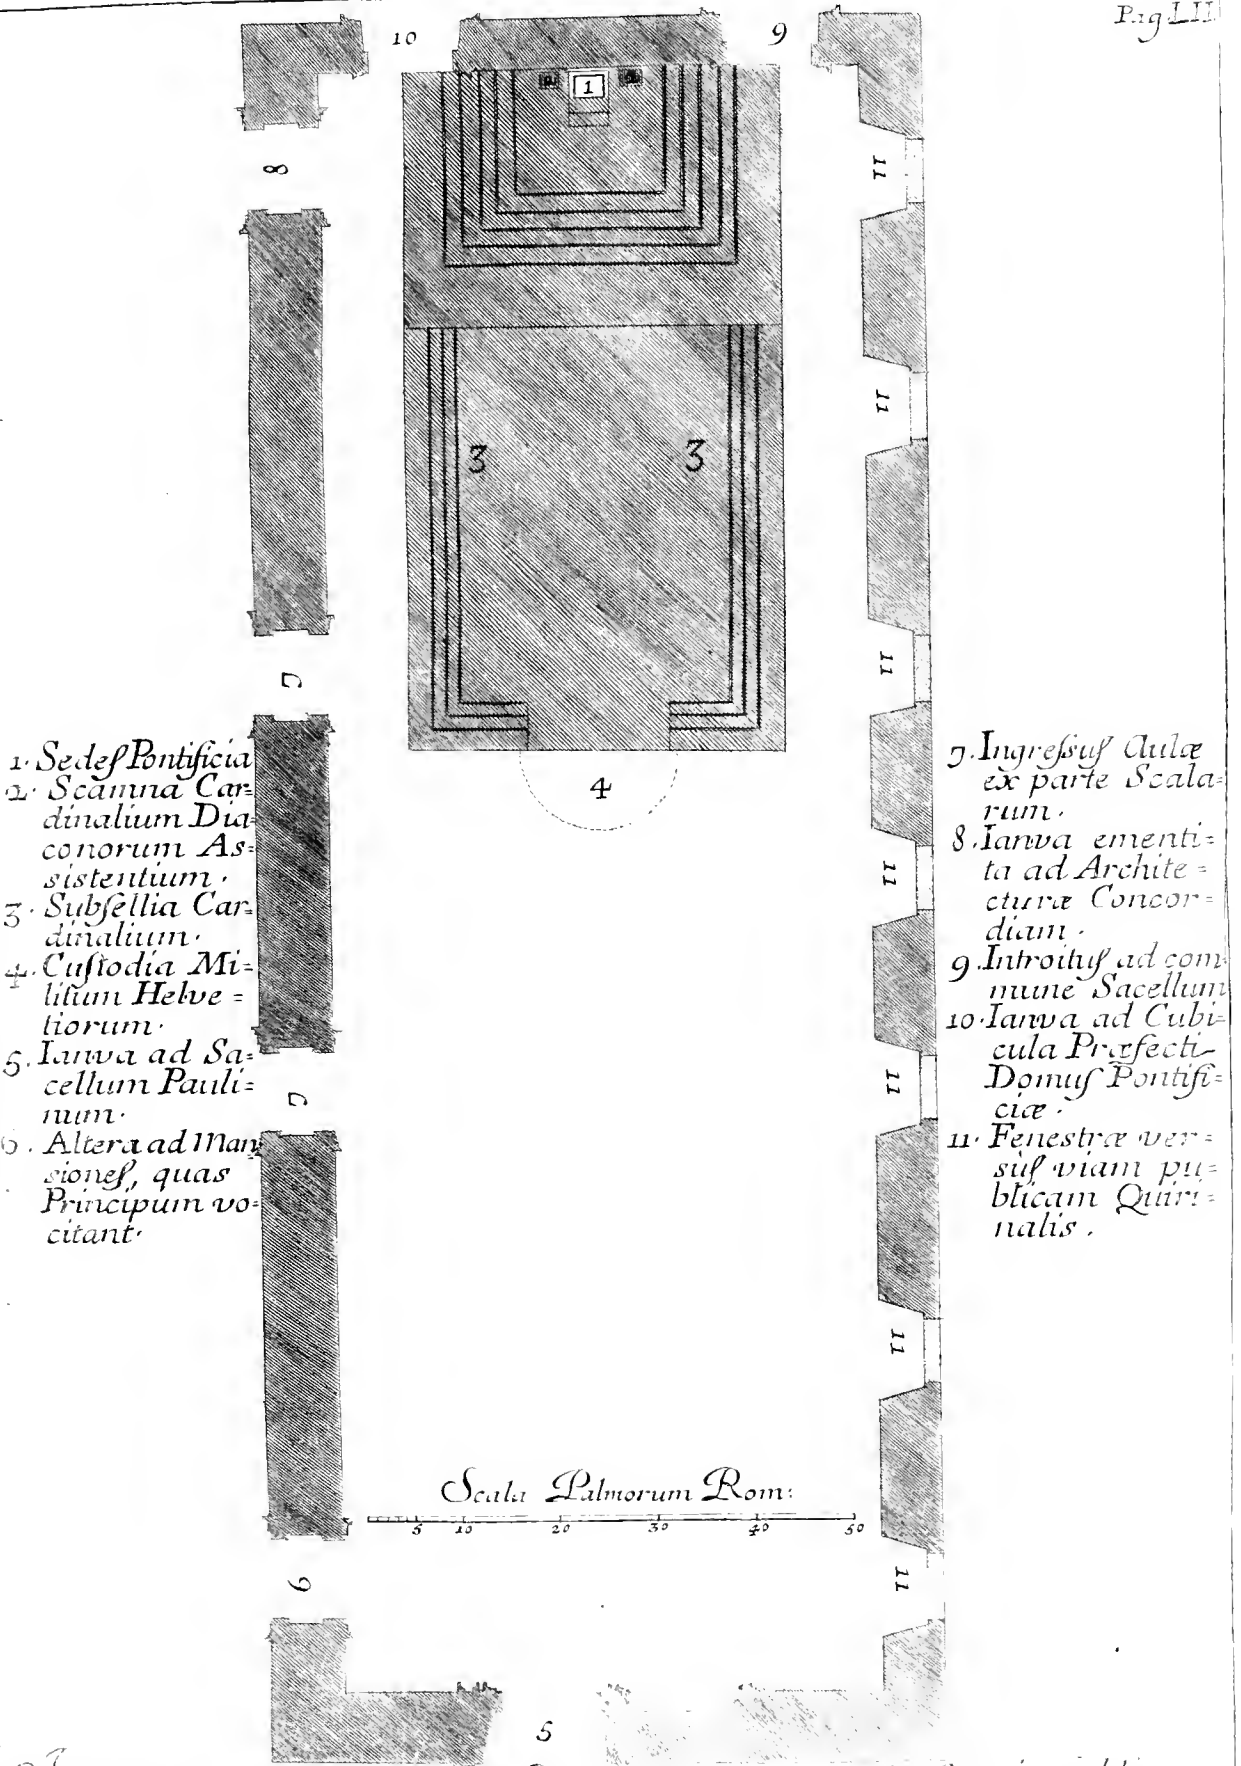 Pag. LII
10
9
1
8
11
11
3
3
11
7
4
1. Sedes Pontificia
2. Scamna Car=
dinalium Dia=
conorum As=
sistentium.
3. Subsellia Car=
dinalium.
4. Custodia Mi=
litum Helve=
tiorum.
5. Ianva ad Sa=
cellum Pauli=
num.
6. Altera ad Man
siones, quas
Principum vo=
citant.
7. Ingressus Aulæ
ex parte Scala=
rum.
8. Ianva ementi=
ta ad Archite=
cturæ Concor=
diam.
9. Introitus ad com
mune Sacellum
10. Ianva ad Cubi=
cula Præfecti
Domus Pontifi=
ciæ.
11. Fenestræ ver=
sus viam pu=
blicam Quiri=
nalis.
11
11
7
11
Scala Palmorum Rom:
5 10 20 30 40 50
6
11
5